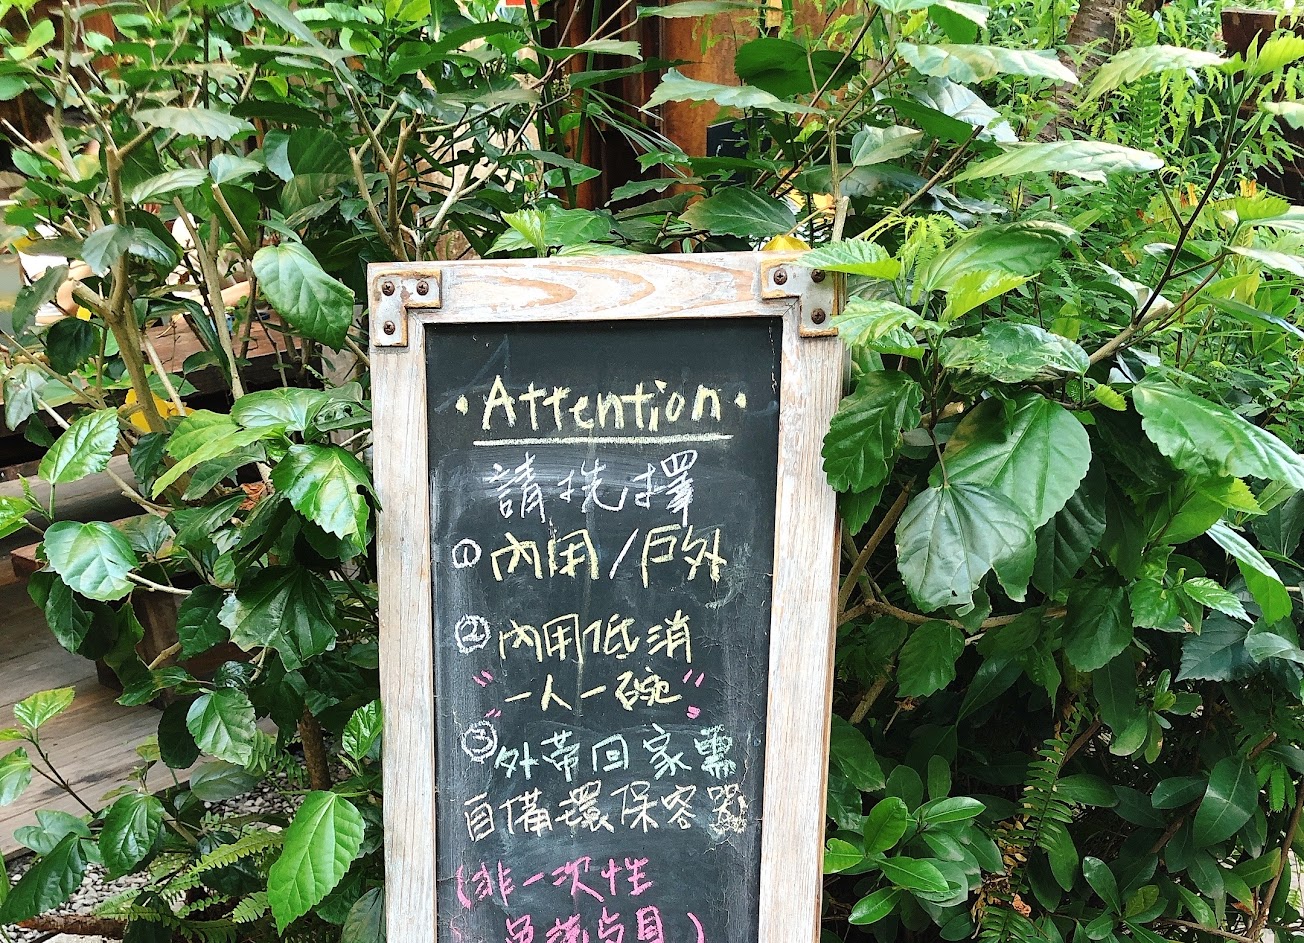 ·Attention·
請擇
①內用/戶外
②內用低消
"一人一碗"
③外帶回家需
自備環保容器
(非一次性
具)